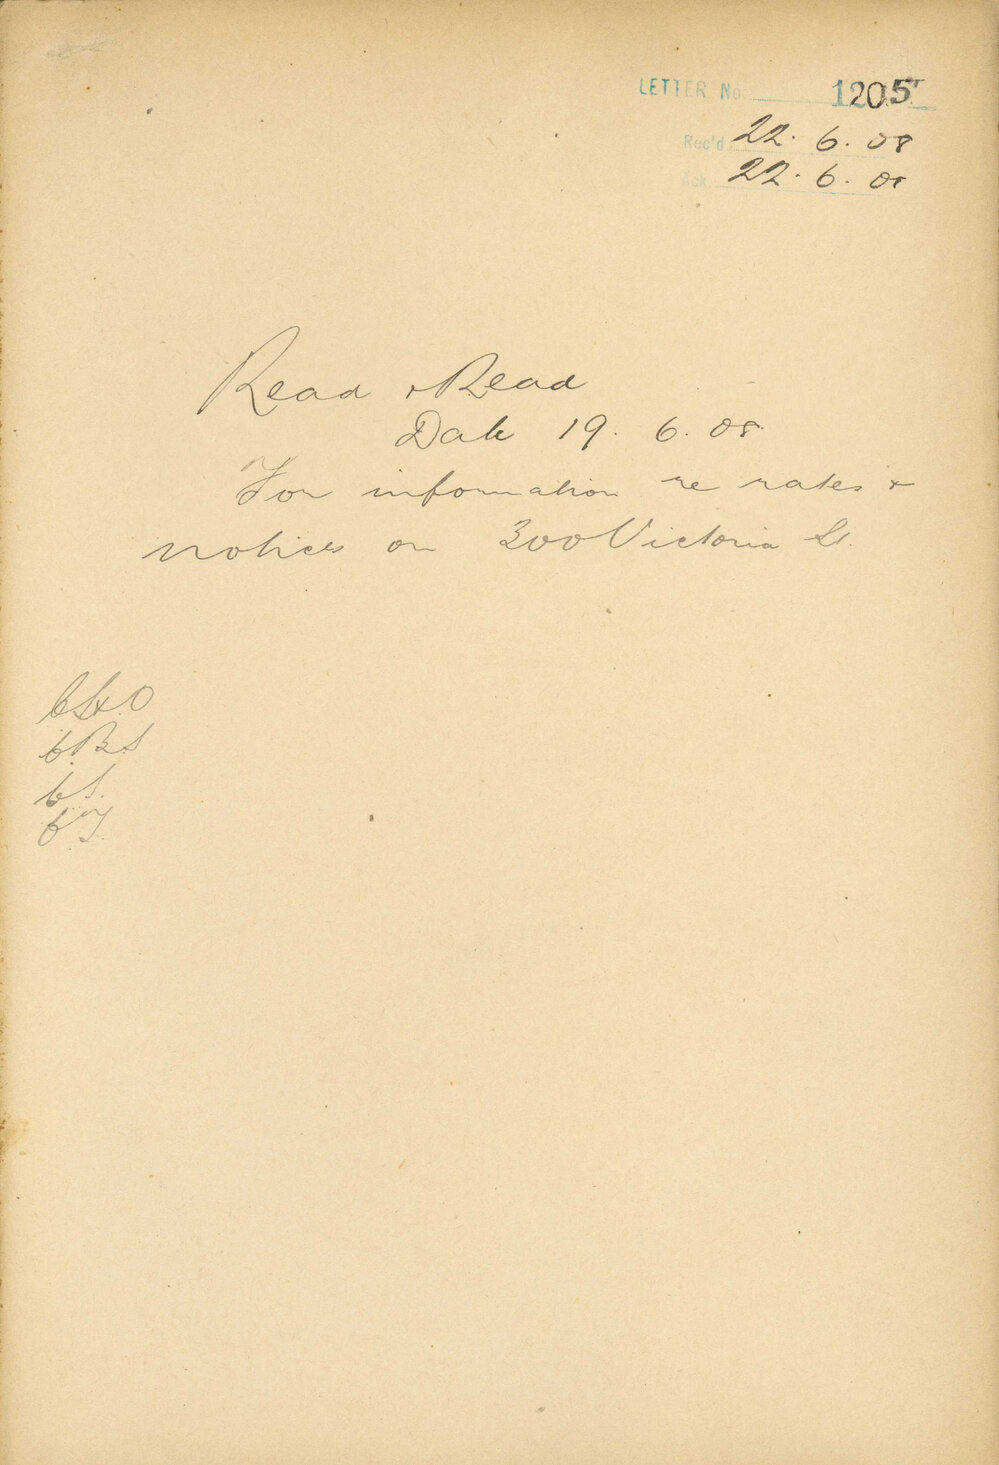 LETTER No. 1205
Rec'd 22. 6. 08
Ack. 22. 6. 08
Read & Read
Date 19. 6. 08.
For information re rates &
notices on 300 Victoria St.
C.B.S
C.S.
C.T.